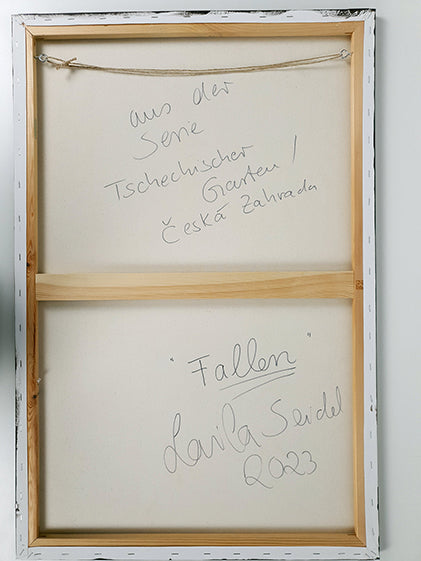 aus der
Serie
Tschechischer
Garten /
Česká Zahrada
"Fallen"
Laila Seidel
2023